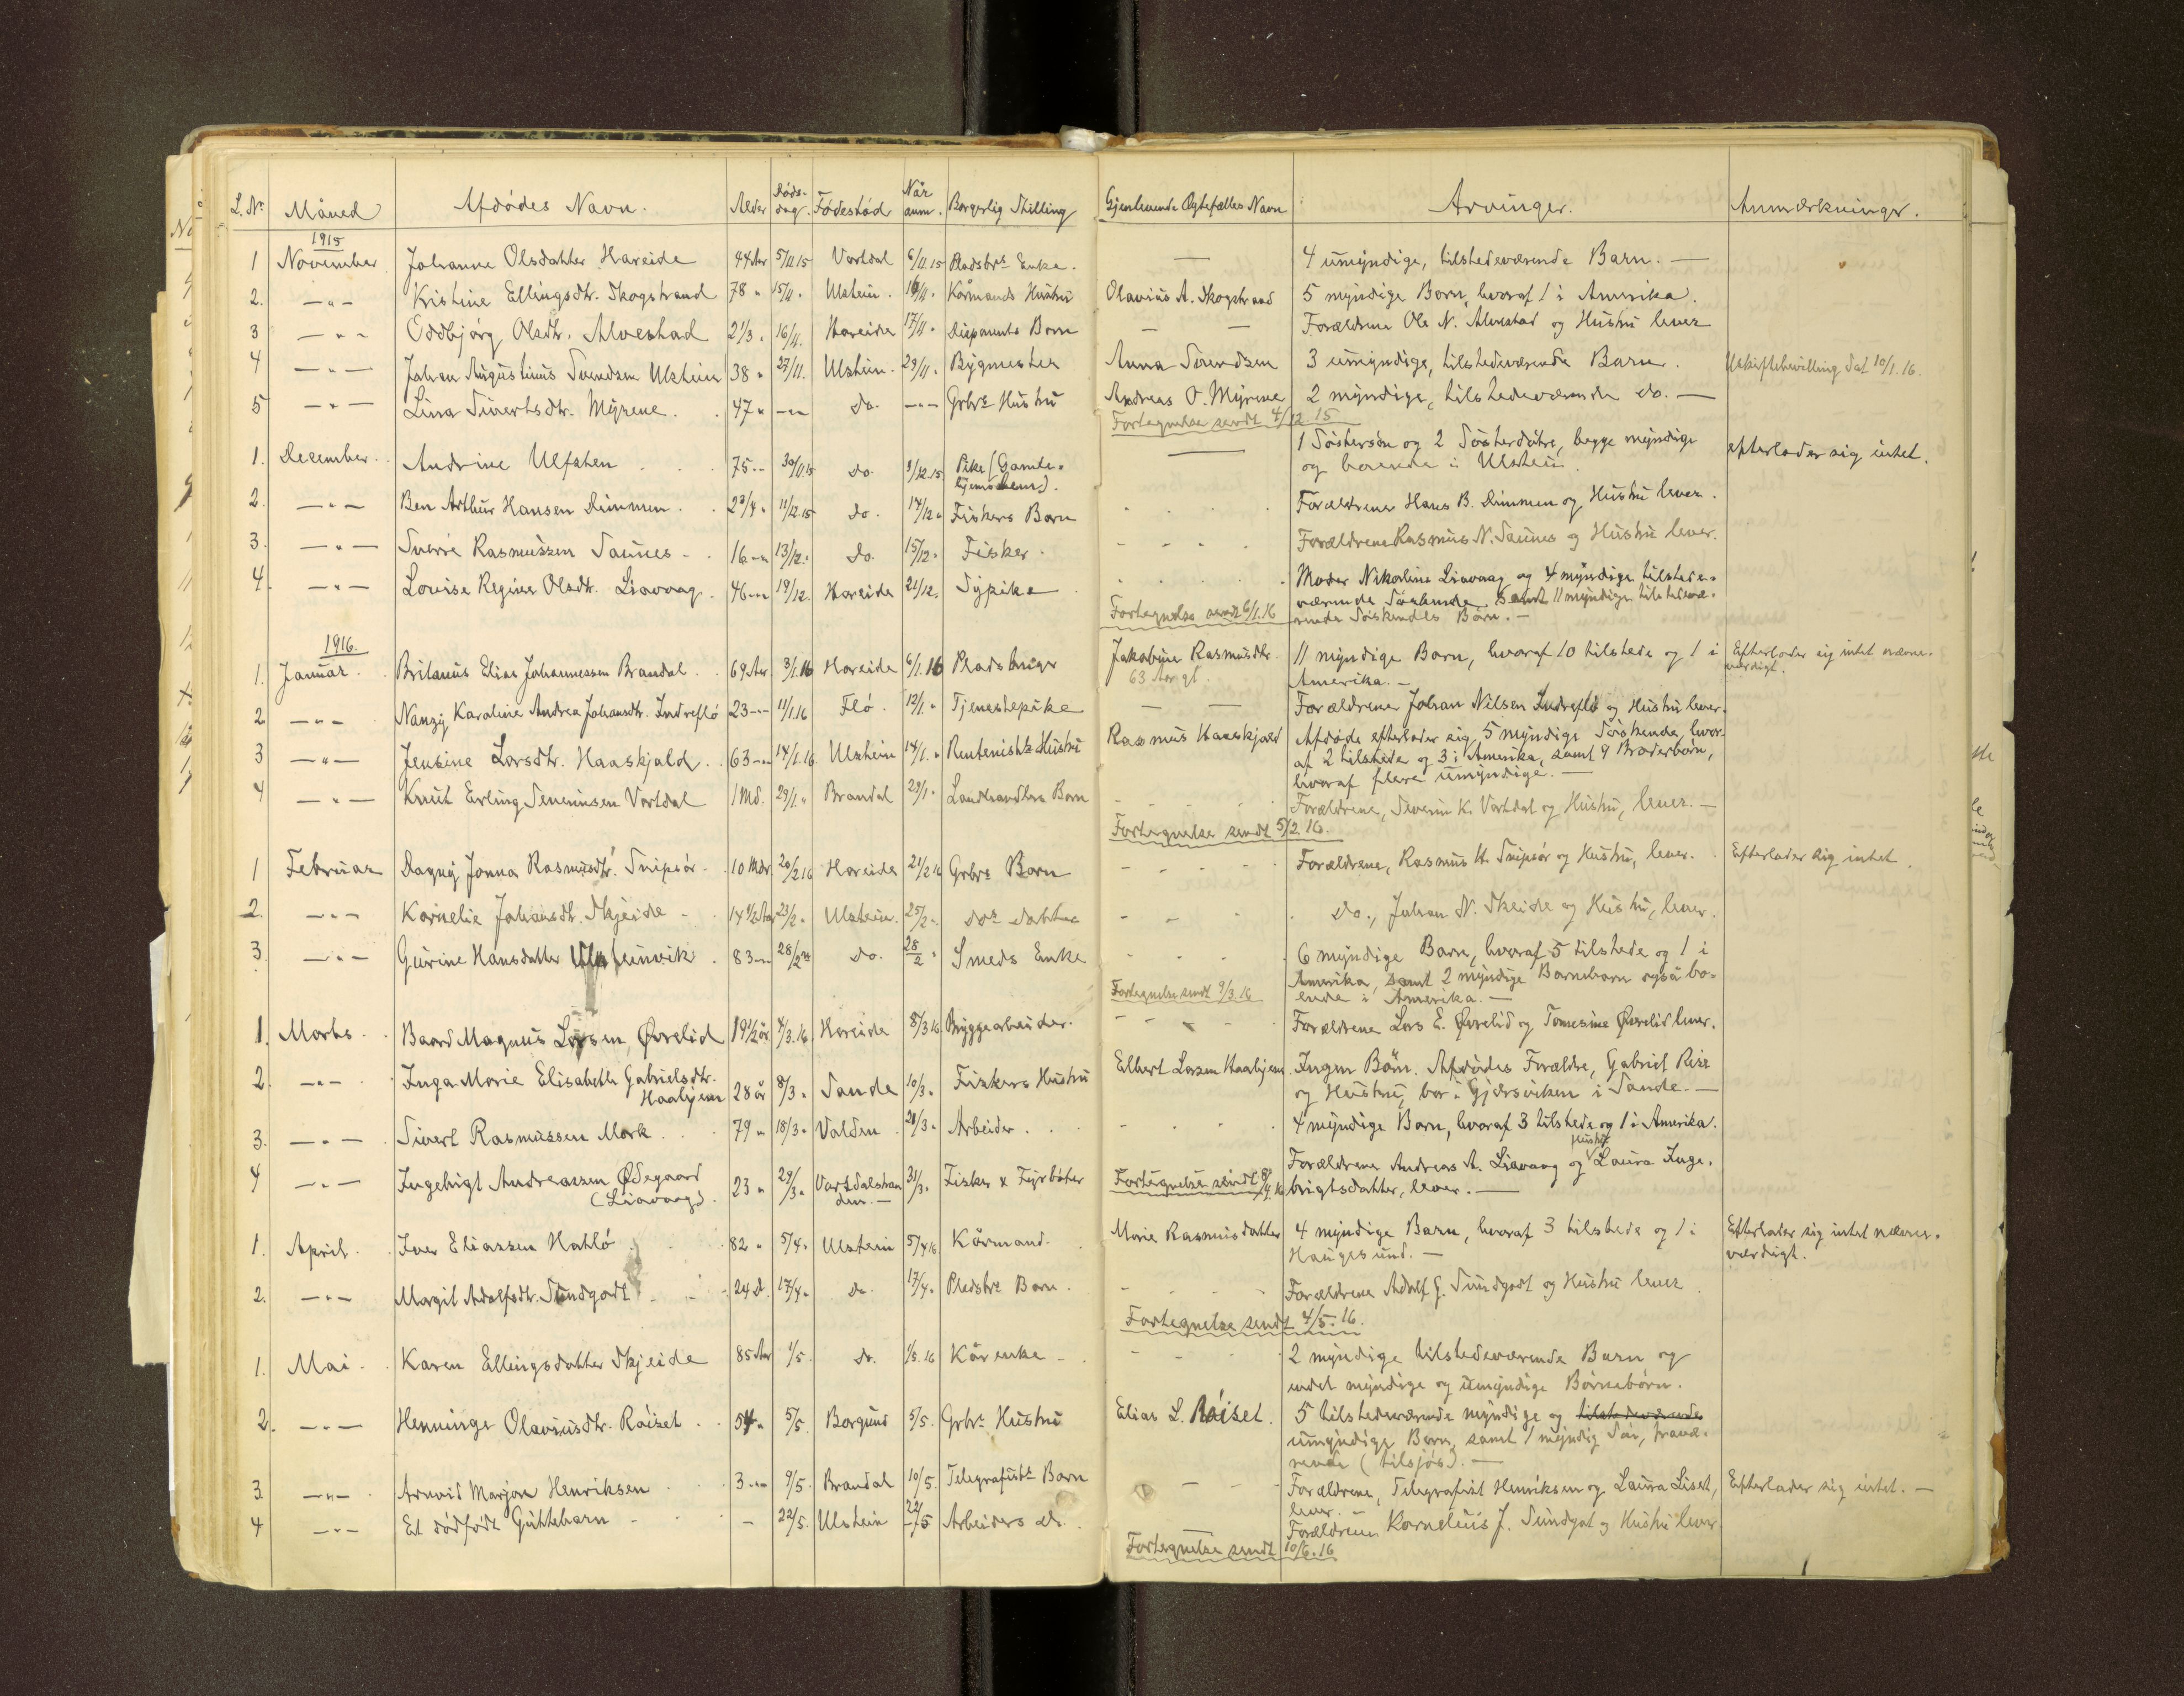 L. Nr. Måned Afdödes Navn. Alder Döds-dag. Födested Når anm. Borgerlig Stilling Gjenlevende Ægtefælles Navn Arvinger. Anmærkninger.
1915
1 November Johanne Olsdatter Hareide 44 Aar 5/11.15 Vartdal 6/11.15 Pladsbrs Enke. — 4 umyndige, tilstedeværende Barn. —
2. —"— Kristine Ellingsdtr. Skogstrand 78 " 15/11 " Ulstein. 16/11 " Kårmands Hustru Olavius A. Skogstrand 5 myndige Born, hvoraf 1 i Amerika.
3 —"— Oddbjörg Olsdtr. Alvestad 2 1/3 " 16/11. Hareide 17/11 " Disponents Barn — — Forældrene Ole N. Alvestad og Hustru lever
4 —"— Johan Augustinus Svendsen Ulstein 38 " 27/11. Ulstein. 29/11 " Bygmester Anna Svendsen 3 umyndige, tilstedeværende Barn. Uskiftebevilling dat 10/1.16.
5 —"— Lina Sivertsdtr. Myrene. 47 " —"— do. —"— Grbrs Hustru Andreas O. Myrene 2 myndige, tilstedeværende do. —
Fortegnelse sendt 4/12 15
1. December. Andrine Ulfsten 75 -- 30/11.15 do. 1/12.15 Pike (Gamle-hjemslem). — 1 Söstersön og 2 Sösterdötre, begge myndige
og boende i Ulstein. efterlader sig intet.
2. —"— Ben Arthur Hansen Dimmen. 2 3/4 " 11/12.15 do. 14/12 " Fiskers Barn Forældrene Hans B. Dimmen og Hustru lever.
3. —"— Sverre Rasmussen Saunes - 16 -"- 13/12. do. 15/12. Fisker. Forældrene Rasmus N. Saunes og Hustru lever.
4. —"— Louise Regine Olsdtr. Liavaag. 46 -"- 19/12. Hareide 21/12. Sypike Moder Nikoline Liavaag og 4 myndige tilstede-
værende Söskende samt 11 myndige tilstedevæ-
Fortegnelse sendt 6/1.16 rende Söskendes Börn. —
1916.
1. Januar. Britanus Elias Johannessen Brandal. 69 Aar. 3/1.16 Hareide 6/1.16 Pladsbruger Jakobine Rasmusdtr. 11 myndige Barn, hvoraf 10 tilstede og 1 i Efterlader sig intet nævne-
63 Aar gl. Amerika. — værdigt.
2 —"— Nanzy Karoline Andrea Johansdtr. Indreflö 23 -"- 11/1.16 Flö. 12/1. " Tjenestepike — — Forældrene Johan Nilsen Indreflö og Hustru lever.
3 —"— Jensine Larsdtr. Haaskjold. 63 -"- 14/1.16. Ulstein 14/1. " Rentenists Hustru Rasmus Haaskjold Afdöde efterlader sig 5 myndige Söskende, hvor-
af 2 tilstede og 3 i Amerika, samt 9 Broderbörn,
hvoraf flere umyndige. —
4 —"— Knut Erling Severinsen Vartdal 1 Md. 29/1. " Brandal 29/1 " Landhandlers Barn Forældrene, Severin K. Vartdal og Hustru, lever. —
Fortegnelse sendt 5/2.16.
1 Februar Dagny Jonna Rasmusdtr. Snipsör. 10 Mdr. 20/2 16 Hareide 21/2 16 Grbrs Barn Forældrene, Rasmus H. Snipsör og Hustru, lever. Efterlader sig intet.
2. —"— Kornelie Johansdtr. Skjeide - 14 1/2 Aar 23/2 " Ulstein. 25/2 ". dos datter do., Johan N. Skeide og Hustru, lever.
3. —"— Gurine Hansdatter Ulsteinvik. 83 -"- 28/2 do. 28/2 " Smeds Enke 6 myndige Barn, hvoraf 5 tilstede og 1 i
Amerika, samt 2 myndige Barnebarn også bo-
Fortegnelse sendt 9/3.16 ende i Amerika. —
1. Marts. Baard Magnus Larsen Övrelid 19 1/2 år 4/3.16 Hareide 8/3 16. Bryggearbeider. Forældrene Lars E. Övrelid og Tomesine Övrelid lever.
2. —"— Inga Marie Elisabeth Gabrielsdtr.
Haahjem 28 år 8/3 " Sande 10/3 " Fiskers Hustru Elbert Larsen Haahjem. Ingen Börn. Afdödes Forældre, Gabriel Rise
og Hustru, bor i Gjærsviken i Sande. —
3. —"— Sivert Rasmussen Mork. 79 " 18/3 " Valden. 20/3 " Arbeider. 4 myndige Barn, hvoraf 3 tilstede og 1 i Amerika.
4 —"— Ingebrigt Andreassen Ödegaard
(Liavaag). 23 " 29/3 " Vartdalstranden. — 31/3 " Fisker & Fyrböter Forældrene Andreas A. Liavaag og Hustru Laura Inge-
Fortegnelse sendt 8/4.16 brigtsdatter, lever. —
1. April. Iver Eliassen Hatlö 82 " 5/4 " Ulstein 5/4 16 Kårmand. Marie Rasmusdatter 4 myndige Barn, hvoraf 3 tilstede og 1 i Efterlader sig intet nævne-
Haugesund. — værdigt.
2. —"— Margit Adolfsdtr. Sundgodt 24 D. 17/4 " do. 17/4 " Pladsbrs Barn. Forældrene Adolf G. Sundgodt og Hustru lever.
Fortegnelse sendt 4/5.16.
1. Mai. Karen Ellingsdatter Skjeide 85 Aar 1/5. do. 1/5.16 Kårenke - 2 myndige tilstedeværende Barn og
endel myndige og umyndige Börnebörn.
2. —"— Henninge Olaviusdtr. Röiset. 54 " 5/5. Borgund 5/5. Grbrs Hustru Elias L. Röiset. 5 tilstedeværende myndige og tilstedeværende
umyndige Born, samt 1 myndig Sön, fravæ-
rende (tilsjös). —
3. —"— Arnvid Marjon Henriksen 3 -"- 9/5. Brandal 10/5. Telegrafists Barn Forældrene, Telegrafist Henriksen og Laura Liset, Efterlader sig intet. —
lever. —
4 —"— Et dödfödt Guttebarn - — 22/5. Ulstein 22/5 Arbeiders do. Forældrene Kornelius J. Sundgot og Hustru lever
Fortegnelse sendt 10/6.16